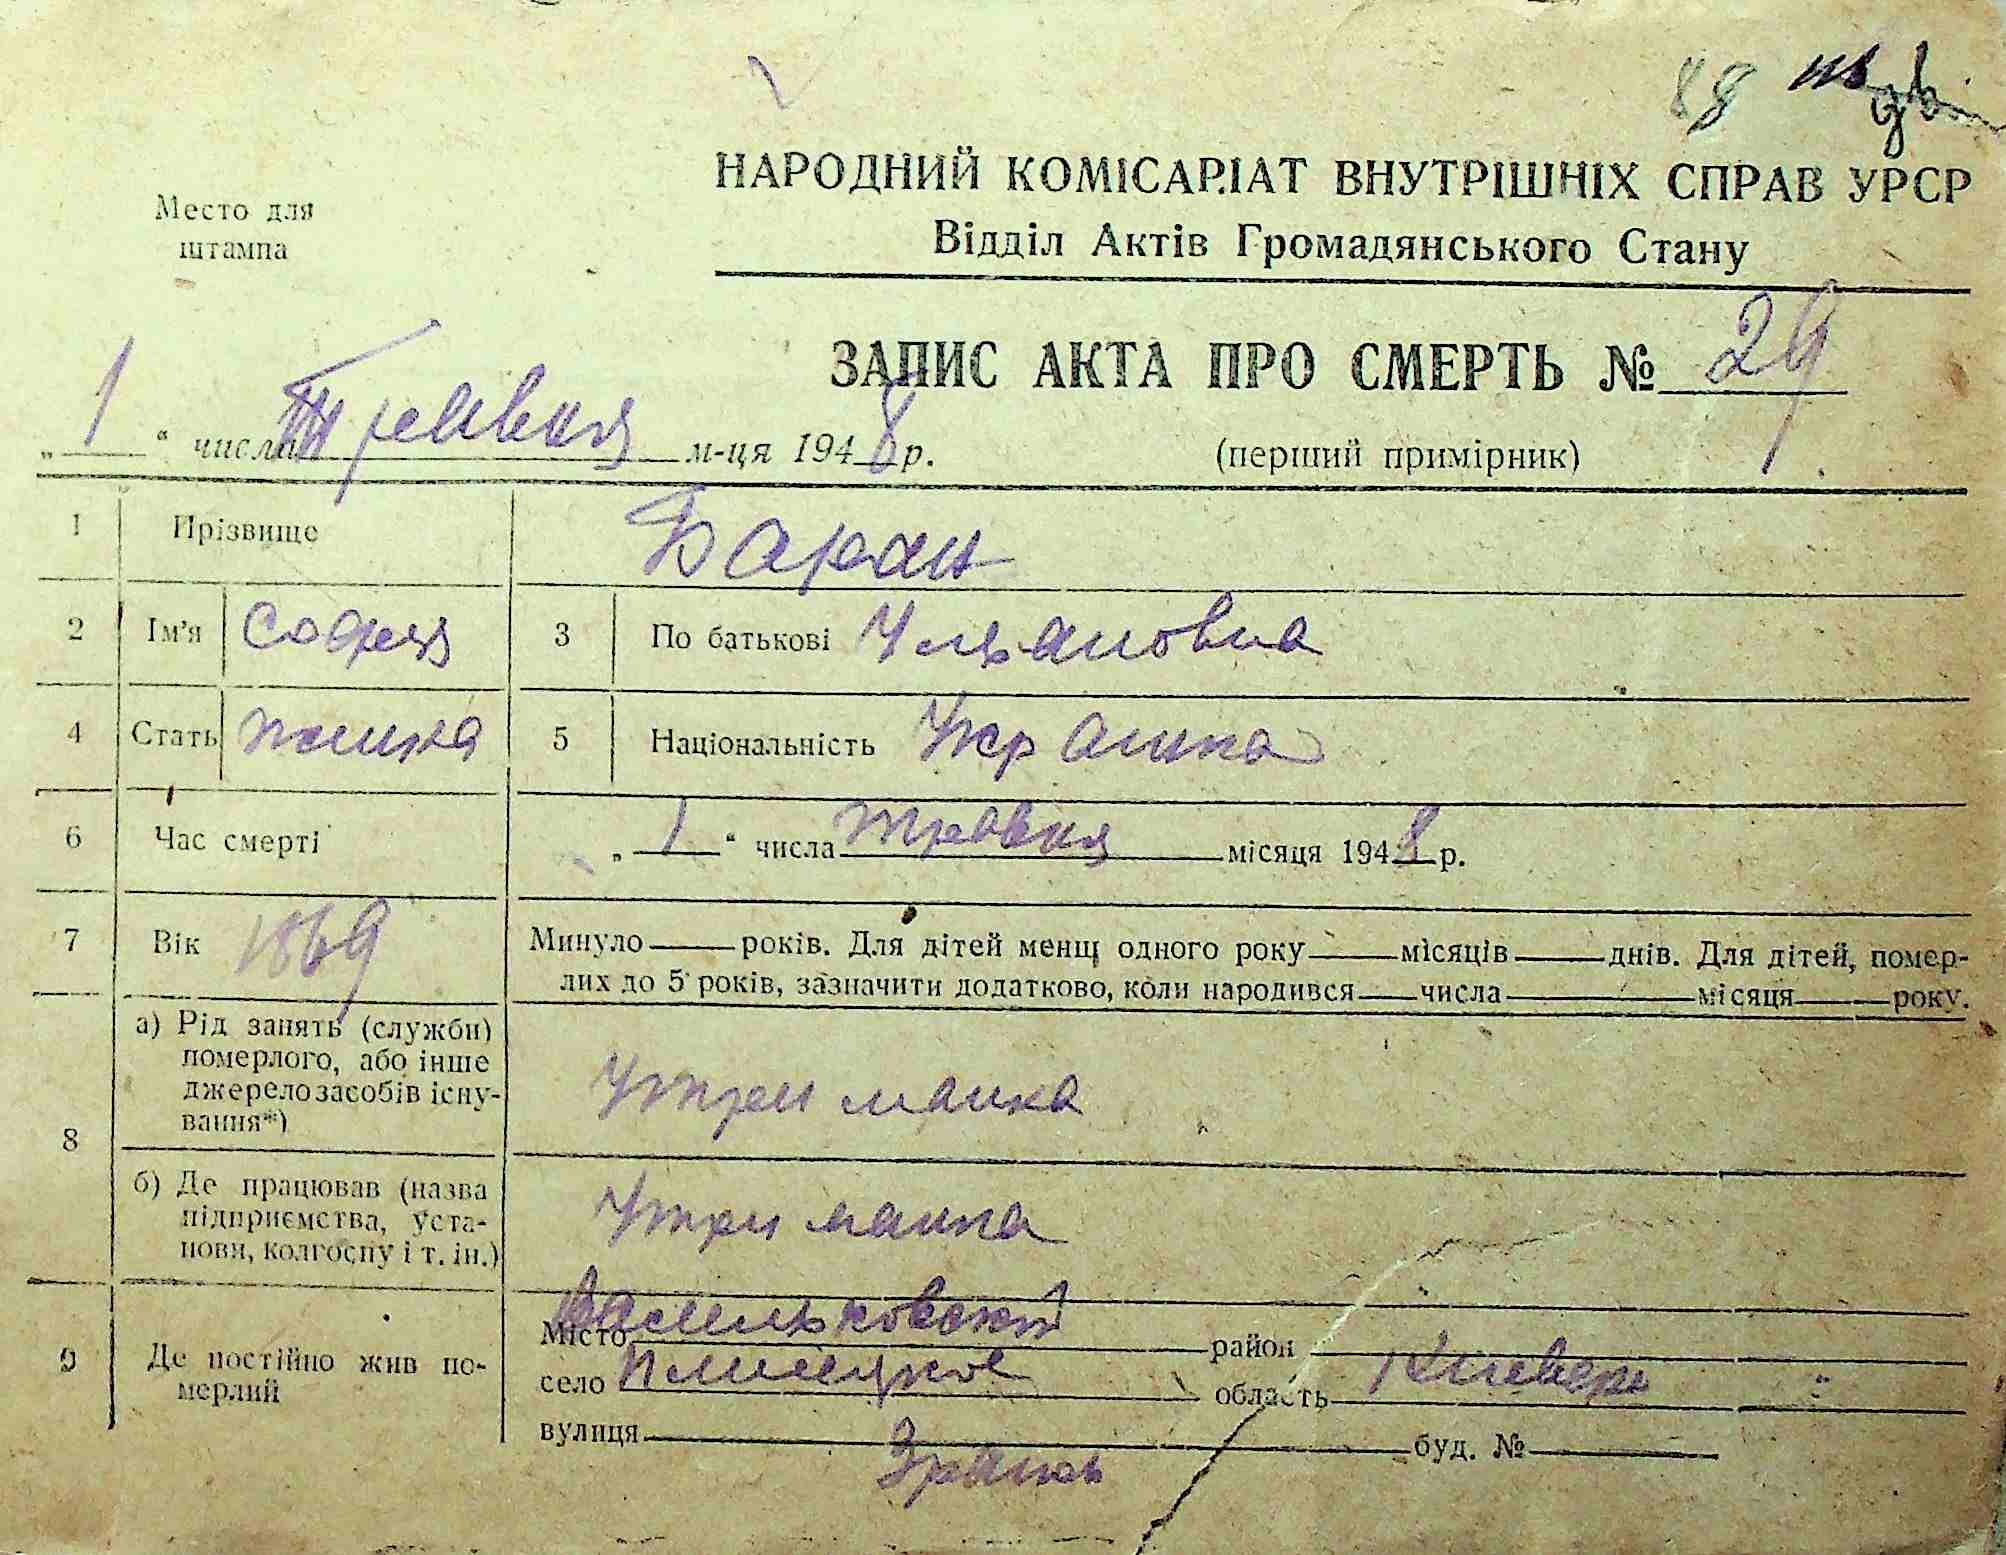 88
Место для
штампа
НАРОДНИЙ КОМІСАРІАТ ВНУТРІШНІХ СПРАВ УРСР
Відділ Актів Громадянського Стану
ЗАПИС АКТА ПРО СМЕРТЬ № 29
„ 1 “ числа Травня м-ця 1948 р.
(перший примірник)
1 Прізвище Баран
2 Ім'я Софія 3 По батькові Ульяновна
4 Стать жінка 5 Національність Українка
6 Час смерті „ 1 “ числа травня місяця 1948 р.
7 Вік 1869 Минуло років. Для дітей менщ одного року місяців днів. Для дітей, помер-
лих до 5 років, зазначити додатково, коли народився числа місяця року.
8 а) Рід занять (служби)
померлого, або інше
джерело засобів існу-
вання*)
Утриманка
б) Де працював (назва
підприємства, уста-
нови, колгоспу і т. ін.)
Утриманка
9 Де постійно жив по-
мерлий
Місто Васильковский район
село Плисецкое область Киевск
вулиця буд. №